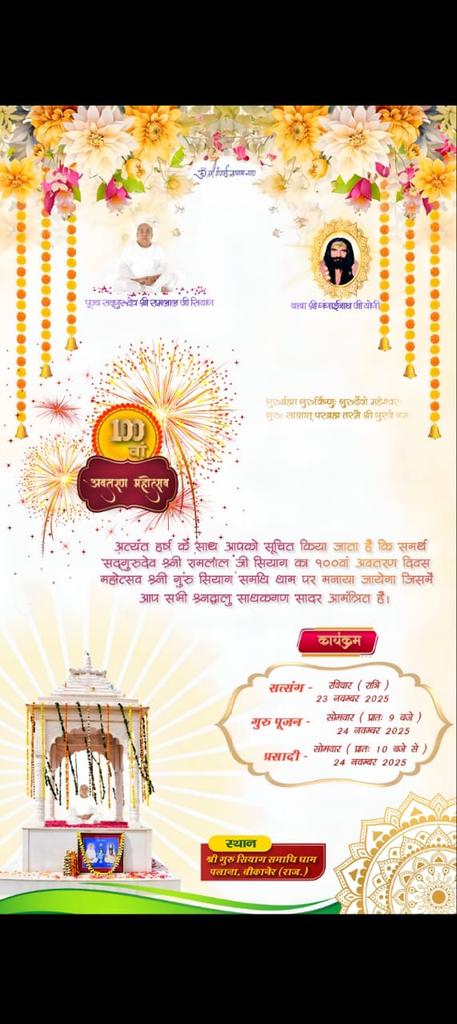 ॐ श्री गंगाई नाथाय नमः
पूज्य सद्गुरुदेव श्री रामलाल जी सियाग
बाबा श्री गंगाईनाथ जी योगी
गुरुर्ब्रह्मा गुरुर्विष्णुः गुरुर्देवो महेश्वरः
गुरुः साक्षात् परब्रह्म तस्मै श्री गुरवे नमः
100
वां
अवतरण महोत्सव
अत्यंत हर्ष के साथ आपको सूचित किया जाता है कि समर्थ
सद्गुरुदेव श्री रामलाल जी सियाग का १००वां अवतरण दिवस
महोत्सव श्री गुरु सियाग समधि धाम पर मनाया जायेगा जिसमें
आप सभी श्रद्धालु साधकगण सादर आमंत्रित है।
कार्यक्रम
सत्संग - रविवार ( रात्रि )
23 नवम्बर 2025
गुरु पूजन - सोमवार ( प्रातः 9 बजे )
24 नवम्बर 2025
प्रसादी - सोमवार ( प्रातः 10 बजे से )
24 नवम्बर 2025
स्थान
श्री गुरु सियाग समाधि धाम
पलाना, बीकानेर (राज.)